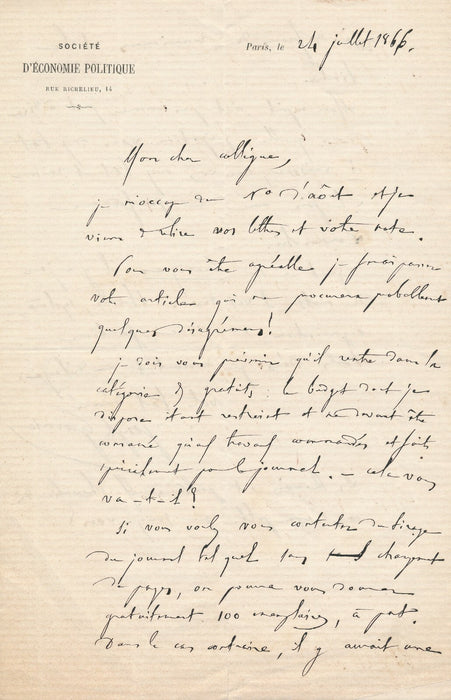 SOCIÉTÉ
D'ÉCONOMIE POLITIQUE
RUE RICHELIEU, 14
Paris, le 24 juillet 1866.
Mon cher collègue,
je m'occupe du No d'août et je
viens de relire vos lettres et votre note.
Pour vous être agréable je ferai passer
votre article qui me procurera probablement
quelques désagréments!
je dois vous prévenir qu'il rentre dans la
catégorie des gratuits, le budget dont je
dispose étant restreint et ne devant être
consacré qu'aux travaux commandés et faits
spécialement pour le journal. — cela vous
va-t-il?
Si vous voulez vous contenter du tirage
du journal tel quel sans changement
de pages, on pourra vous donner
gratuitement 100 exemplaires, à part.
Dans le cas contraire, il y aurait une